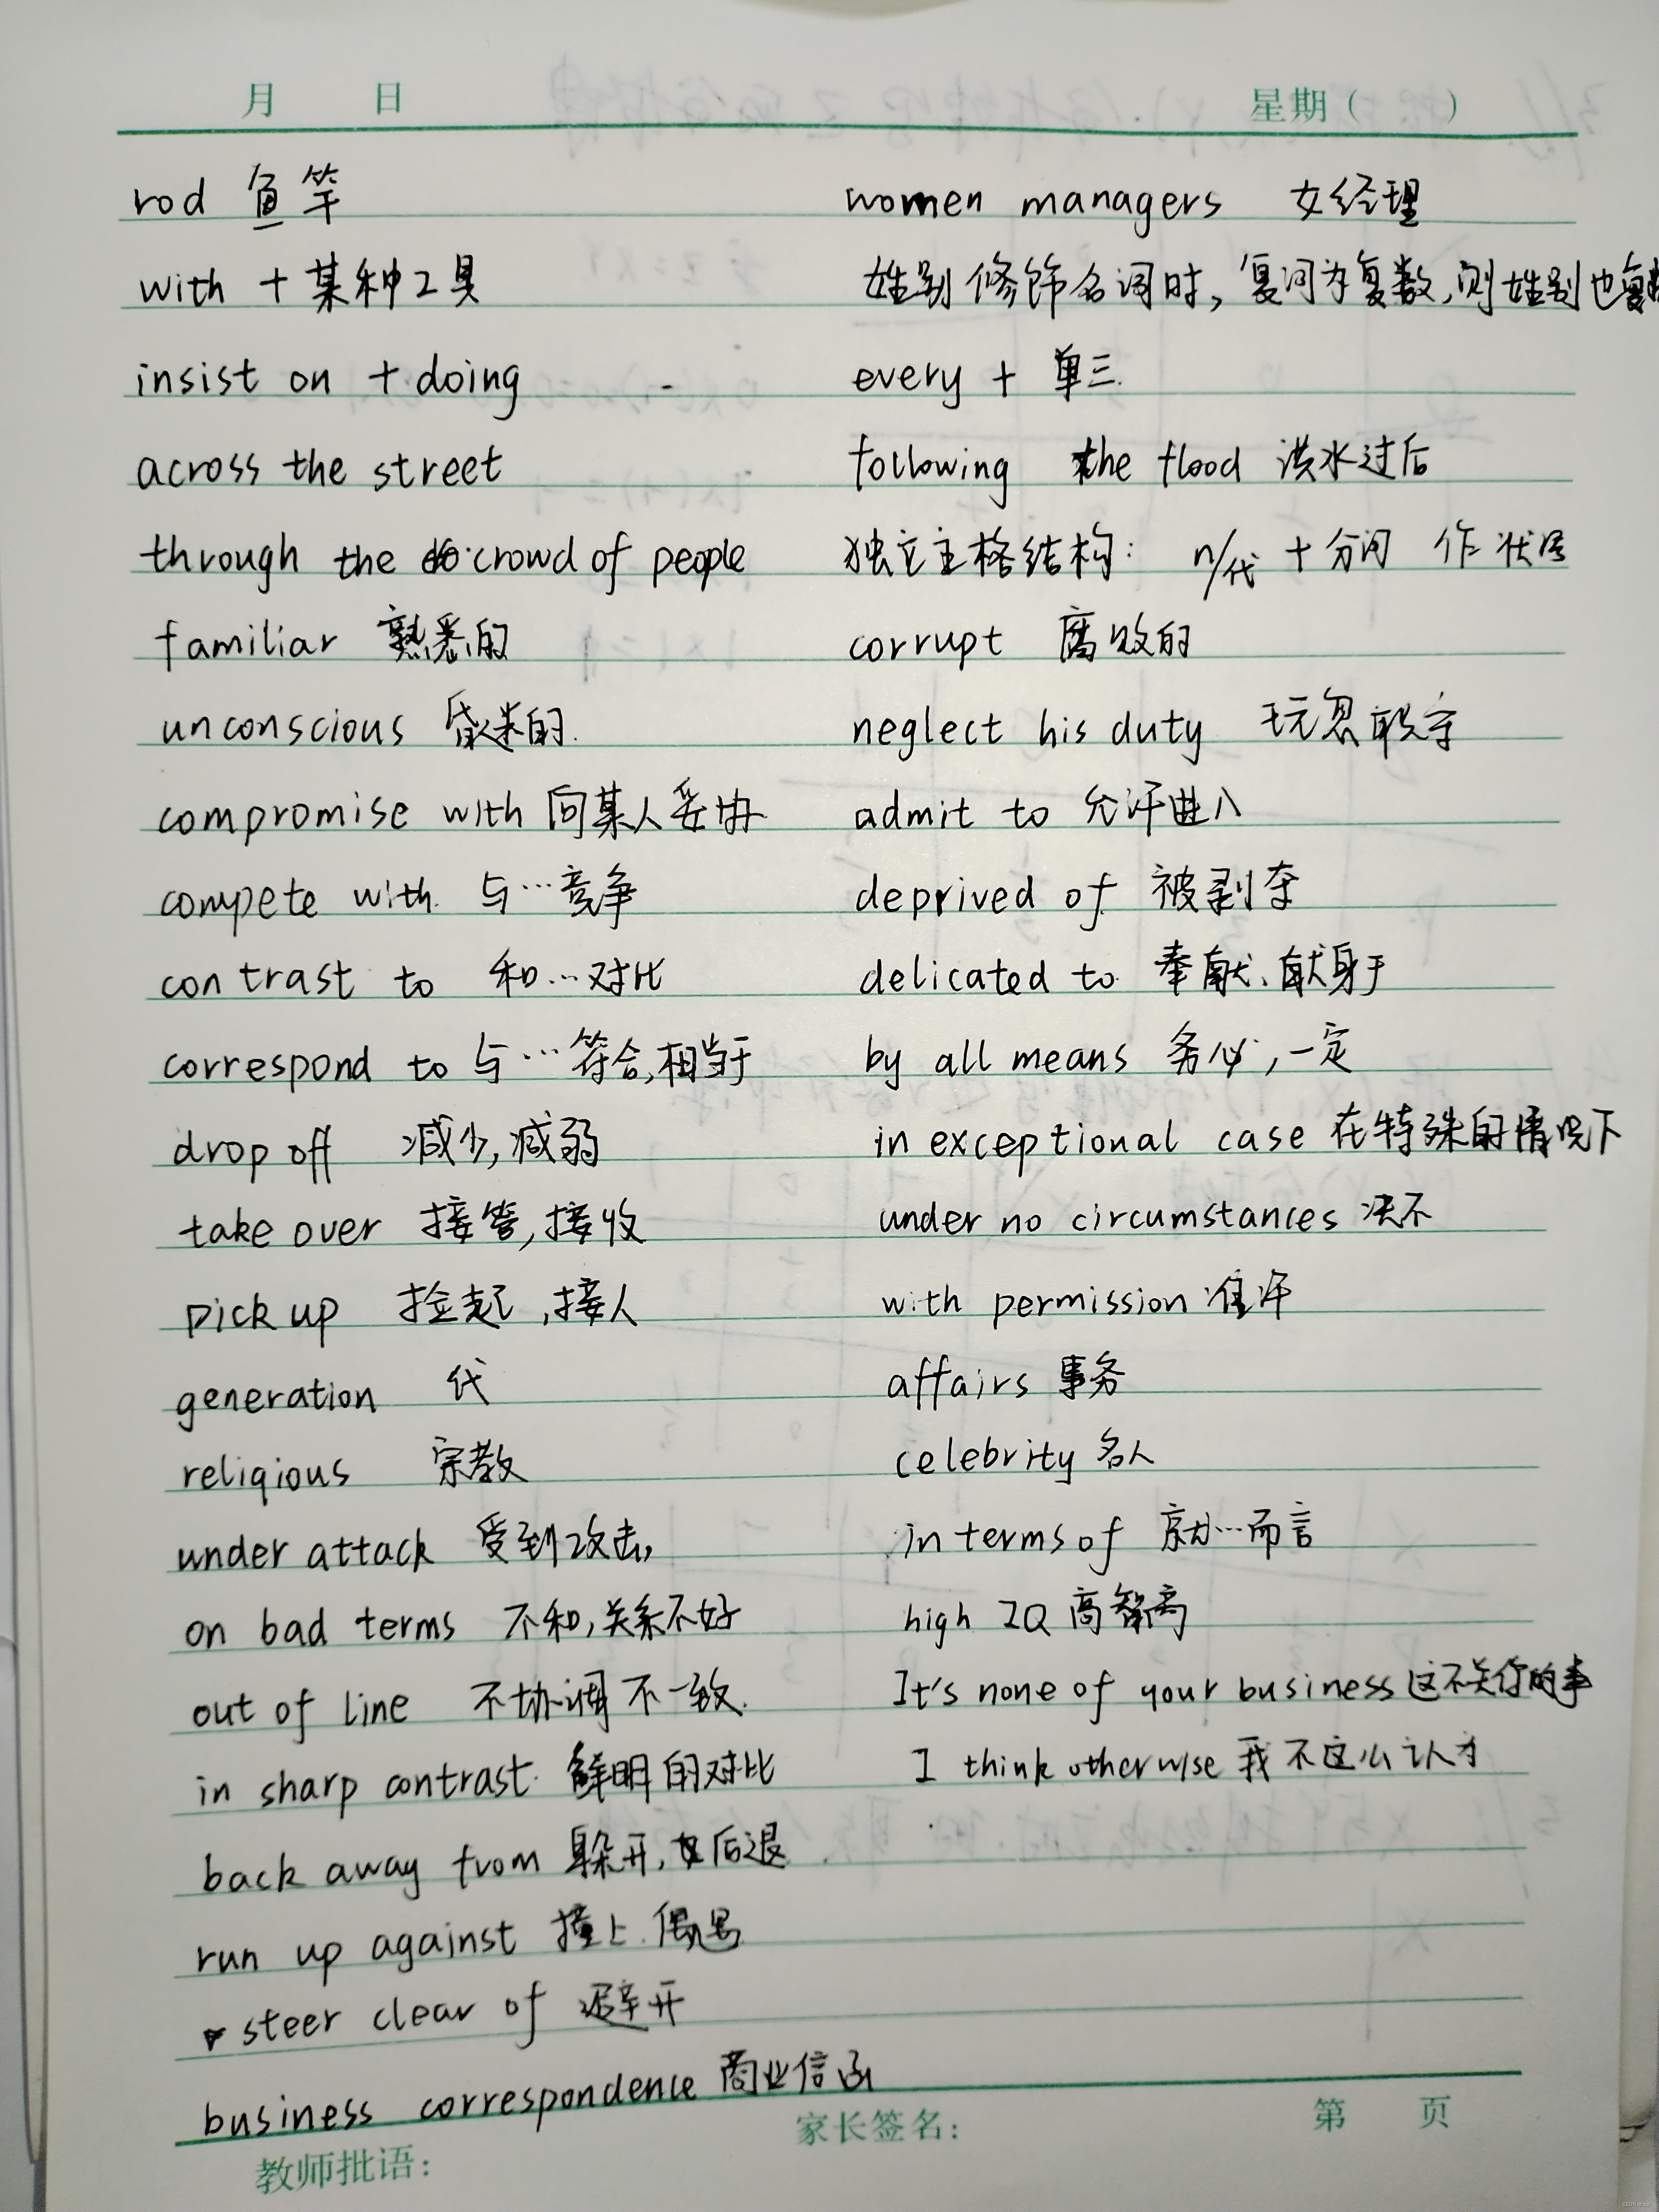 月 日 星期（ ）
rod 鱼竿
with + 某种工具
insist on + doing
across the street
through the crowd of people
familiar 熟悉的
unconscious 昏迷的.
compromise with 向某人妥协
compete with 与…竞争
contrast to 和…对比
correspond to 与…符合,相当于
drop off 减少,减弱
take over 接管,接收
pick up 捡起,接人
generation 代
religious 宗教
under attack 受到攻击,
on bad terms 不和,关系不好
out of line 不协调 不一致.
in sharp contrast. 鲜明的对比
back away from 躲开,后退
run up against 撞上.偶遇
steer clear of 避开
business correspondence 商业信函
women managers 女经理
姓别修饰名词时,复词为复数,则姓别也复数
every + 单三.
following the flood 洪水过后
独立主格结构: n/代 + 分词 作状语
corrupt 腐败的
neglect his duty 玩忽职守
admit to 允许进入
deprived of 被剥夺
delicated to 奉献、献身于
by all means 务必,一定
in exceptional case 在特殊的情况下
under no circumstances 决不
with permission 准许
affairs 事务
celebrity 名人
in terms of 就…而言
high IQ 高智商
It's none of your business 这不关你的事
I think otherwise 我不这么认为
家长签名:
第 页
教师批语: